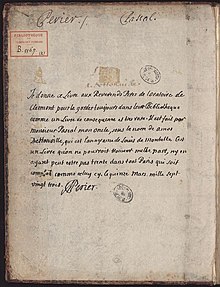 Perier /.
Pascal.
BIBLIOTHÈQUE
B.
Je donne ce Livre aux Reverends Peres de l'oratoire de
Clermont pour le garder toujours dans leur Bibliotheque
comme un Livre de consequence et tres rare. Il est fait par
monsieur Pascal mon oncle, sous le nom de amos
Dettonville, qui est l'anagrame de Louis de Montalte. C'est
un Livre qu'on ne pourroit trouver nulle part, ny en
ayant peut estre pas trente dans tout Paris qui soit
complet comme celuy cy, le quinze Mars, mille sept
vingt trois. Perier.